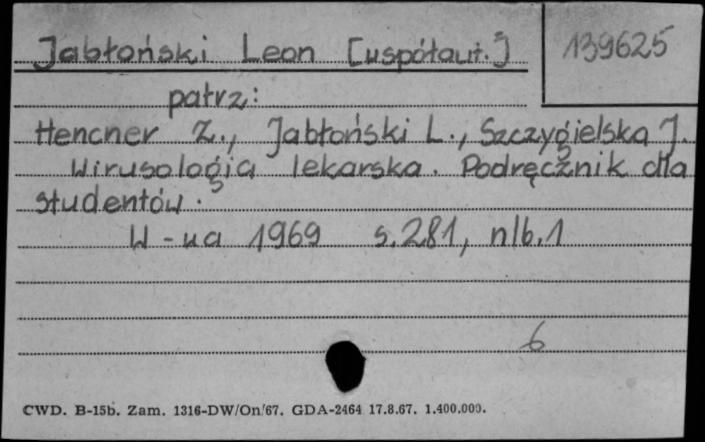 Jabłoński Leon [współaut.] 139625
patrz:
Hencner Z., Jabłoński L., Szczygielska J.
Wirusologia lekarska. Podręcznik dla
studentów.
W-wa 1969 s.281, nlb.1
6
CWD. B-15b. Zam. 1316-DW/On/67. GDA-2464 17.8.67. 1.400.000.